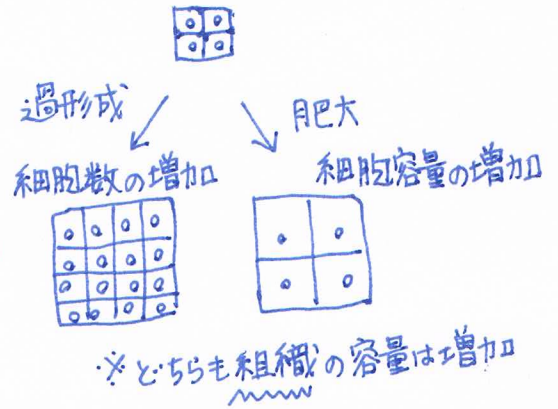 過形成
肥大
細胞数の増加
細胞容量の増加
※どちらも組織の容量は増加